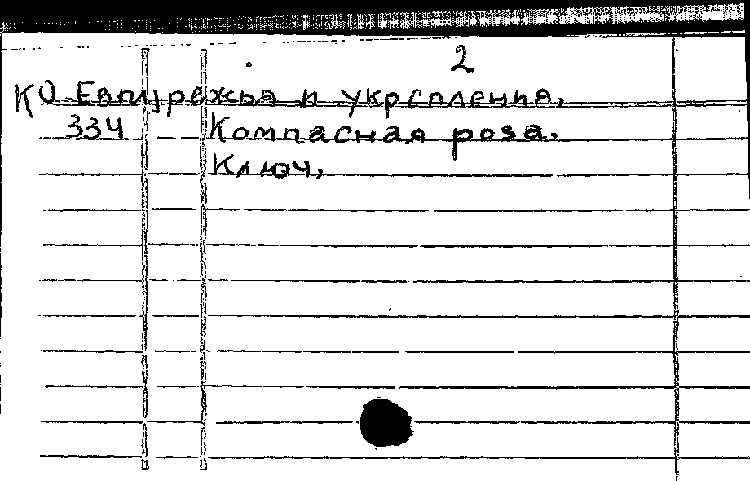 2
КО побережья и укрепления.
334 Компасная роза.
Ключ.